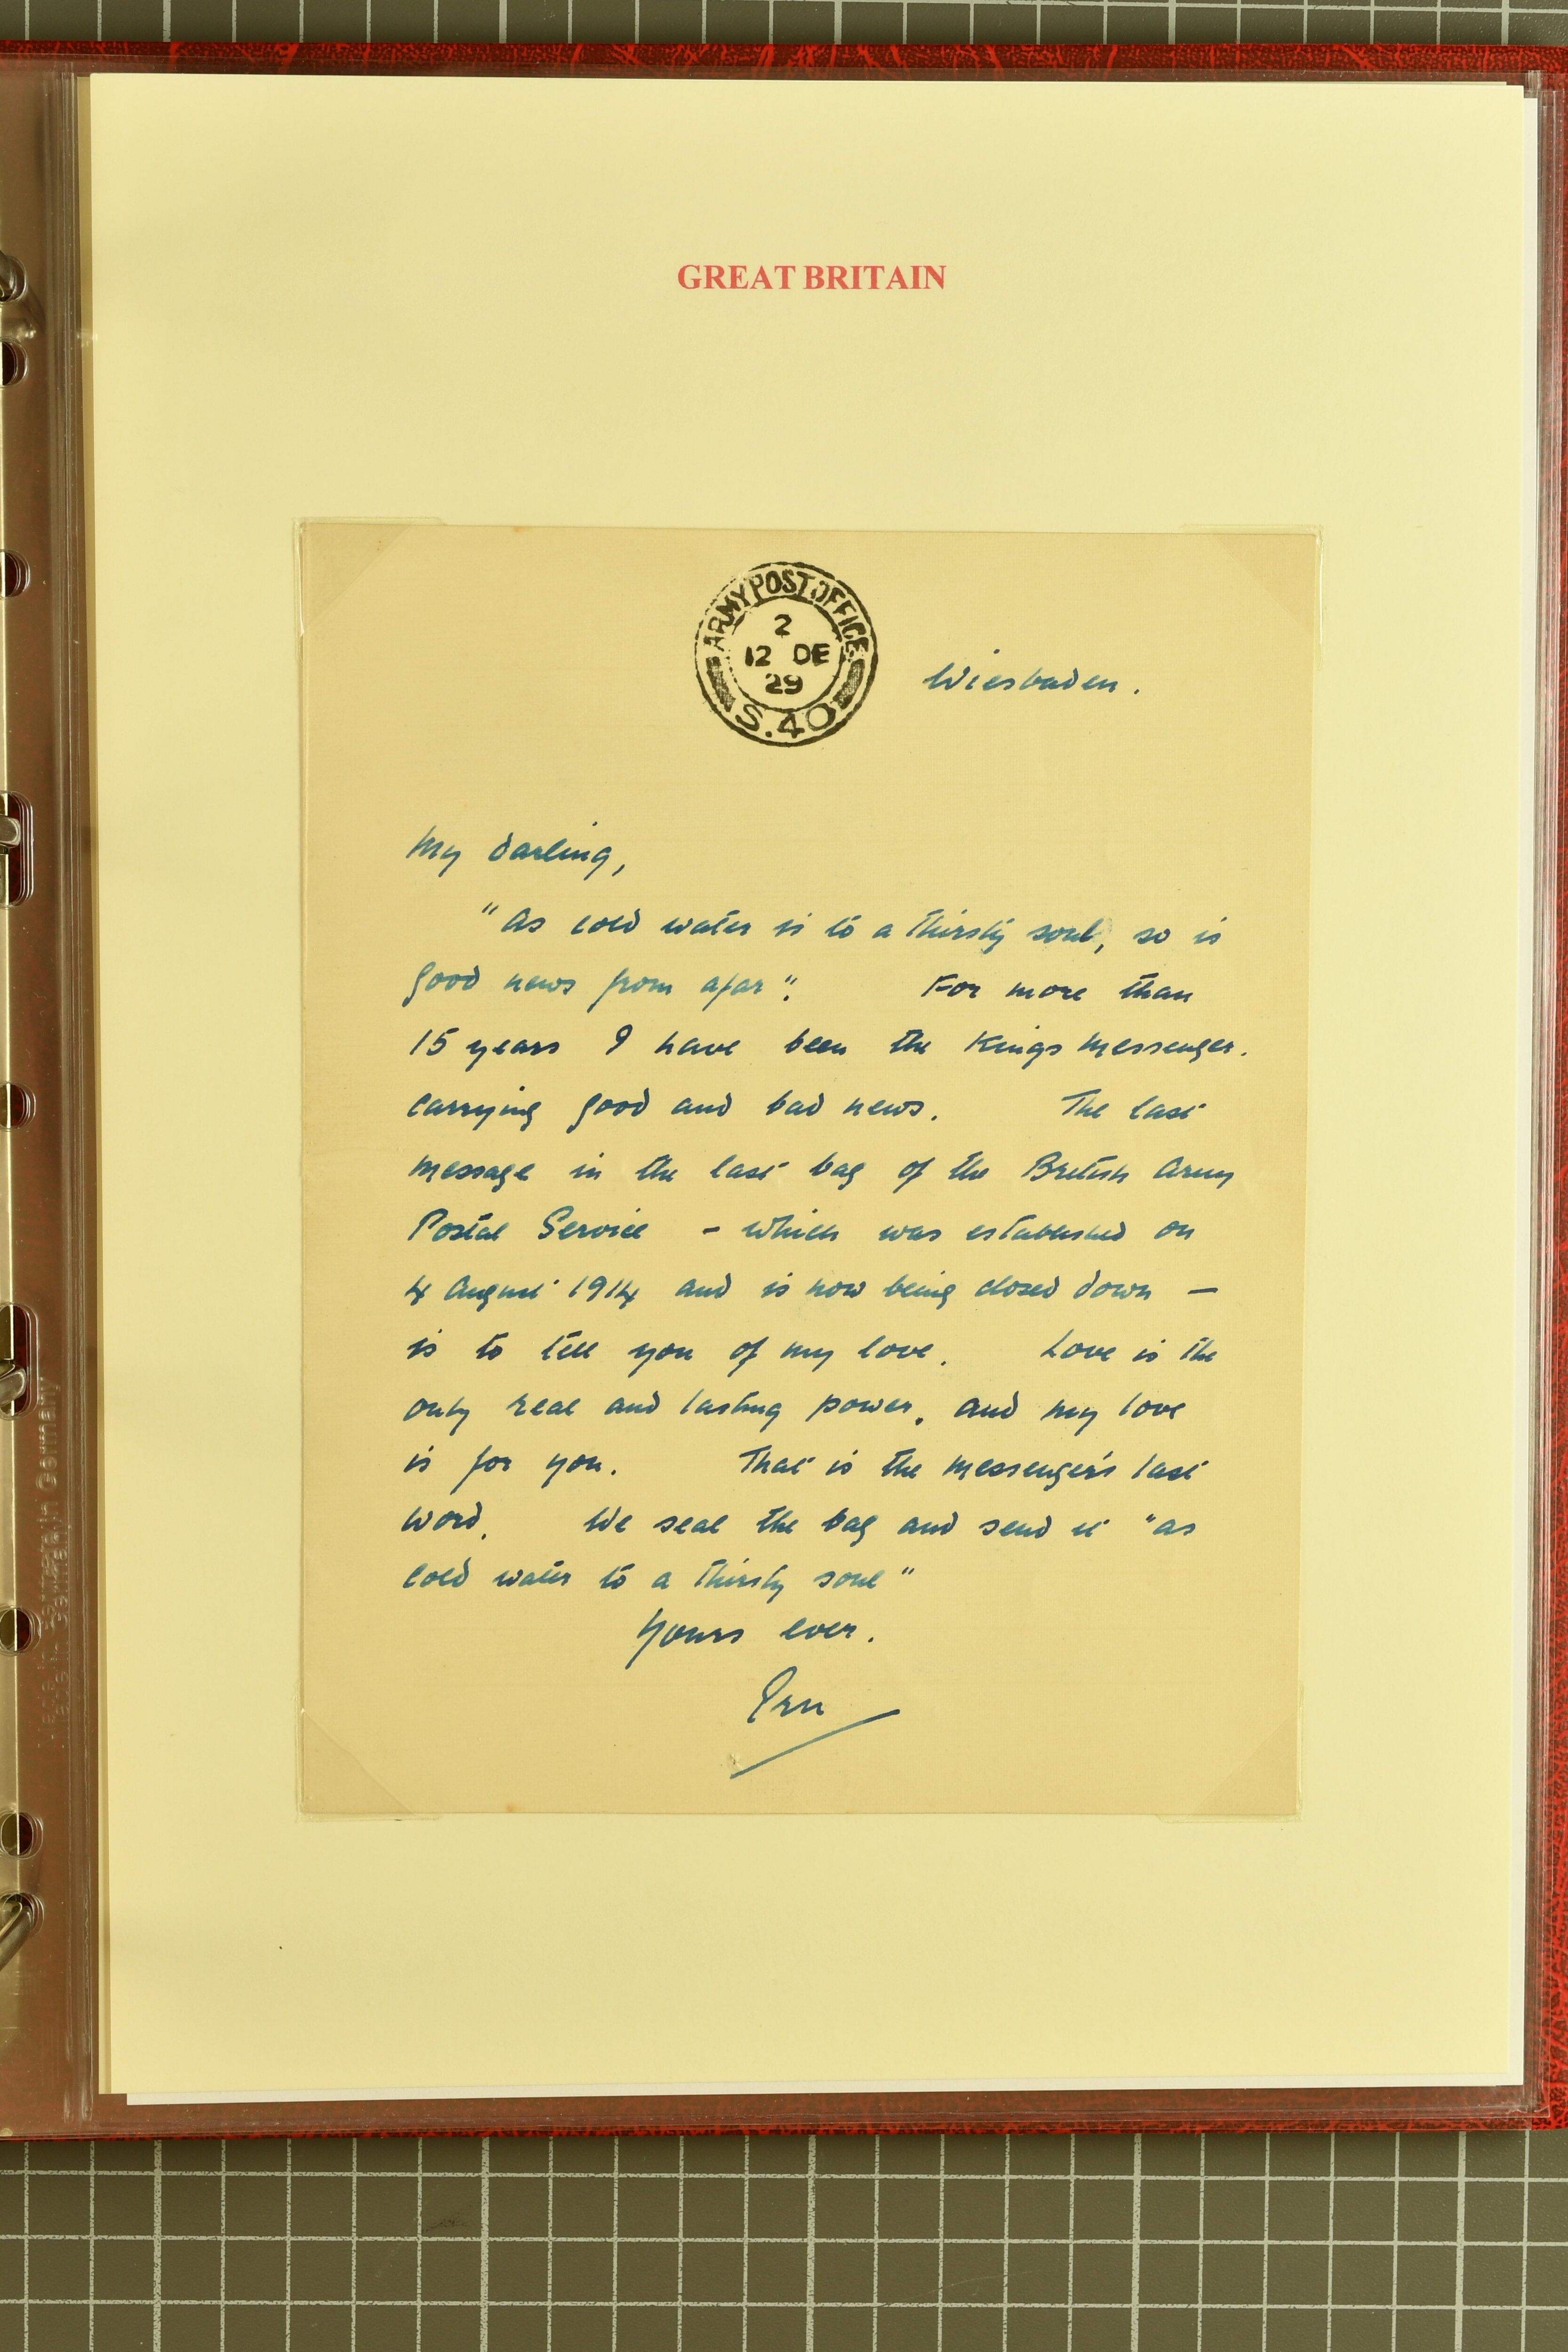 GREAT BRITAIN
ARMY POST OFFICE
2
12 DE
29
S.40
Wiesbaden.
My darling,
"As cold water is to a thirsty soul, so is
good news from afar".  For more than
15 years I have been the Kings Messenger.
carrying good and bad news.  The last
message in the last bag of the British Army
Postal Service - which was established on
4 August 1914 and is now being closed down -
is to tell you of my love.  Love is the
only real and lasting power, and my love
is for you.  That is the messenger's last
word.  We seal the bag and send it "as
cold water to a thirsty soul"
Yours ever.
Made in Germany